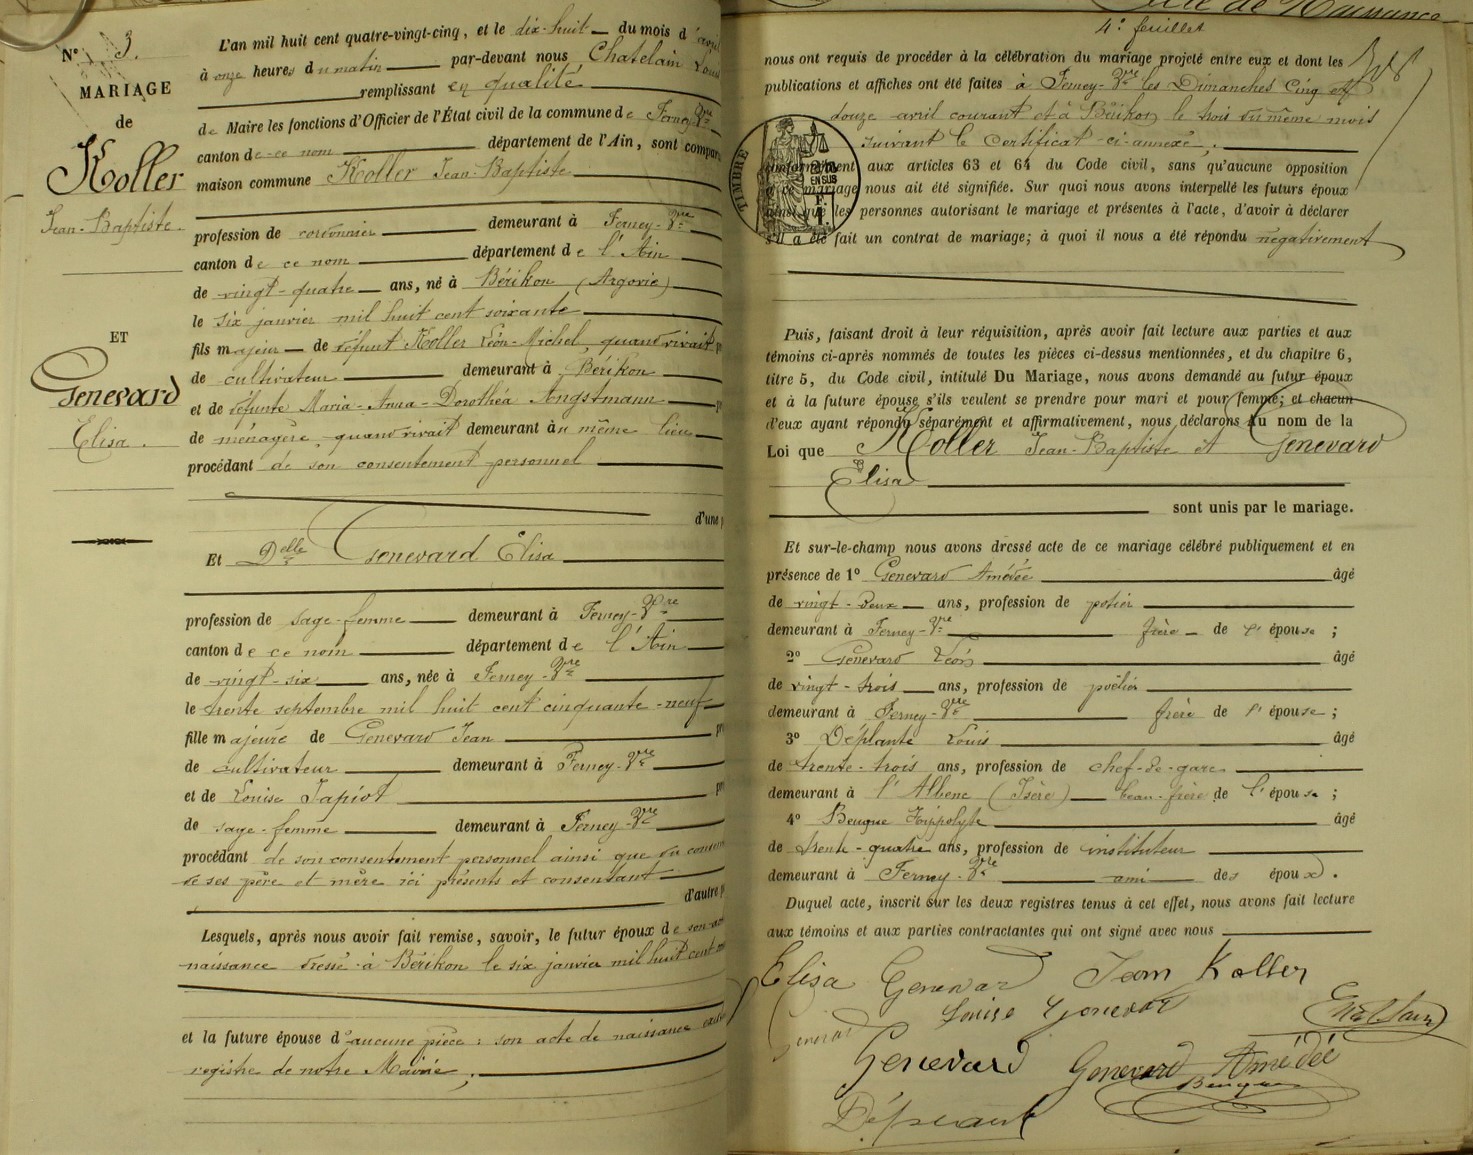 N° 3.
MARIAGE
de
Koller
Jean-Baptiste.
ET
Genevard
Elisa.
L'an mil huit cent quatre-vingt-cinq, et le dix-huit du mois d'avril
à onze heures du matin par-devant nous Chatelain Louis
remplissant en qualité
de Maire les fonctions d'Officier de l'État civil de la commune de Ferney-Vre
canton de ce nom département de l'Ain, sont compar
maison commune Koller Jean-Baptiste
profession de cordonnier demeurant à Ferney-Vre
canton de ce nom département de l'Ain
de vingt-quatre ans, né à Bérikon (Argovie)
le six janvier mil huit cent soixante
fils majeur de défunt Koller Léon-Michel, quand vivait p
de cultivateur demeurant à Bérikon
et de défunte Maria-Anna-Dorothéa Angstmann p
de ménagère, quand vivait demeurant au même lieu
procédant de son consentement personnel
d'une p
Et Delle Genevard Elisa
profession de sage-femme demeurant à Ferney-Vre
canton de ce nom département de l'Ain
de vingt-six ans, née à Ferney-Vre
le trente septembre mil huit cent cinquante-neuf
fille majeure de Genevard Jean pr
de cultivateur demeurant à Ferney-Vre
et de Louise Tapiot pr
de sage-femme demeurant à Ferney-Vre
procédant de son consentement personnel ainsi que du consen
de ses père et mère ici présents et consentant
d'autre p
Lesquels, après nous avoir fait remise, savoir, le futur époux de son acte
naissance dressé à Bérikon le six janvier mil huit cent
et la future épouse d'aucune pièce: son acte de naissance
registre de notre Mairie;
Acte de Naissance
4e feuillet
nous ont requis de procéder à la célébration du mariage projeté entre eux et dont les
publications et affiches ont été faites à Ferney-Vre les Dimanches Cinq et
douze avril courant et à Bérikon le trois du même mois
suivant le certificat ci-annexé.
conformément aux articles 63 et 64 du Code civil, sans qu'aucune opposition
à ce mariage nous ait été signifiée. Sur quoi nous avons interpellé les futurs époux
ainsi que les personnes autorisant le mariage et présentes à l'acte, d'avoir à déclarer
s'il a été fait un contrat de mariage; à quoi il nous a été répondu négativement
TIMBRE
EN SUS
Puis, faisant droit à leur réquisition, après avoir fait lecture aux parties et aux
témoins ci-après nommés de toutes les pièces ci-dessus mentionnées, et du chapitre 6,
titre 5, du Code civil, intitulé Du Mariage, nous avons demandé au futur époux
et à la future épouse s'ils veulent se prendre pour mari et pour femme; et chacun
d'eux ayant répondu séparément et affirmativement, nous déclarons au nom de la
Loi que Koller Jean-Baptiste et Genevard
Elisa
sont unis par le mariage.
Et sur-le-champ nous avons dressé acte de ce mariage célébré publiquement et en
présence de 1° Genevard Amédée âgé
de vingt-deux ans, profession de potier
demeurant à Ferney-Vre frère de l'épouse;
2° Genevard Léon âgé
de vingt-trois ans, profession de poëlier
demeurant à Ferney-Vre frère de l'épouse;
3° Déplante Louis âgé
de trente-trois ans, profession de chef-de-gare
demeurant à l'Albenc (Isère) beau-frère de l'épouse;
4° Beuque Hippolyte âgé
de trente-quatre ans, profession de instituteur
demeurant à Ferney-Vre ami des époux.
Duquel acte, inscrit sur les deux registres tenus à cet effet, nous avons fait lecture
aux témoins et aux parties contractantes qui ont signé avec nous
Elisa Genevard Jean Koller
Louise Genevard
Genevard
Genevard Genevard Amédée
Beuque
Déplante